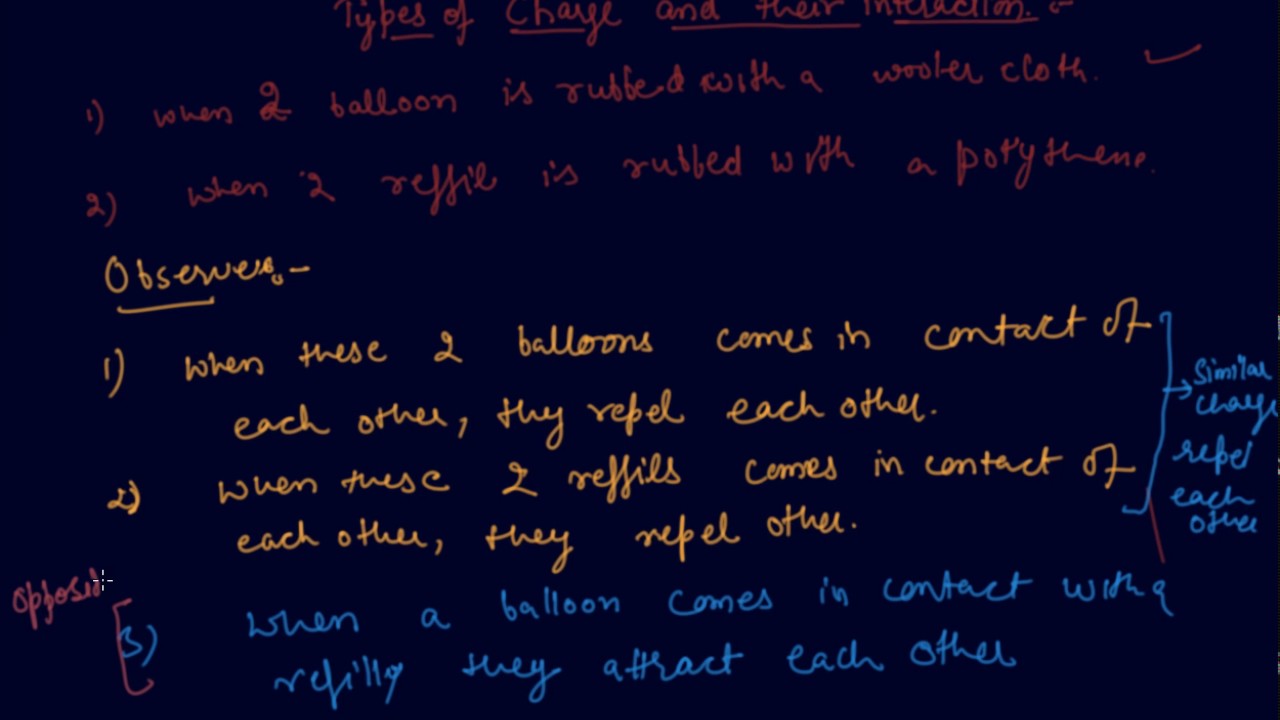 Types of Charge and their Interaction :-
1) when 2 balloon is rubbed with a woolen cloth.
2) when 2 reffil is rubbed with a polythene.
Observer:-
1) when these 2 balloons comes in contact of
each other, they repel each other.
2) when these 2 reffils comes in contact of
each other, they repel other.
Similar
charge
repel
each
other
Opposit
3) when a balloon comes in contact with a
refilly they attract each other